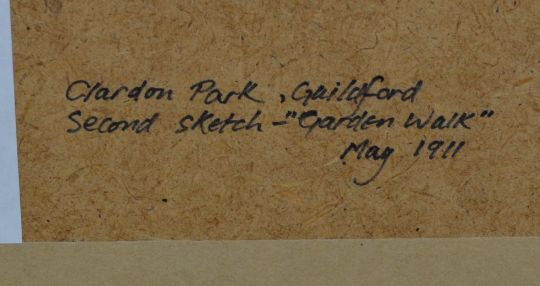 Clardon Park, Guildford
Second sketch - "Garden Walk"
May 1911